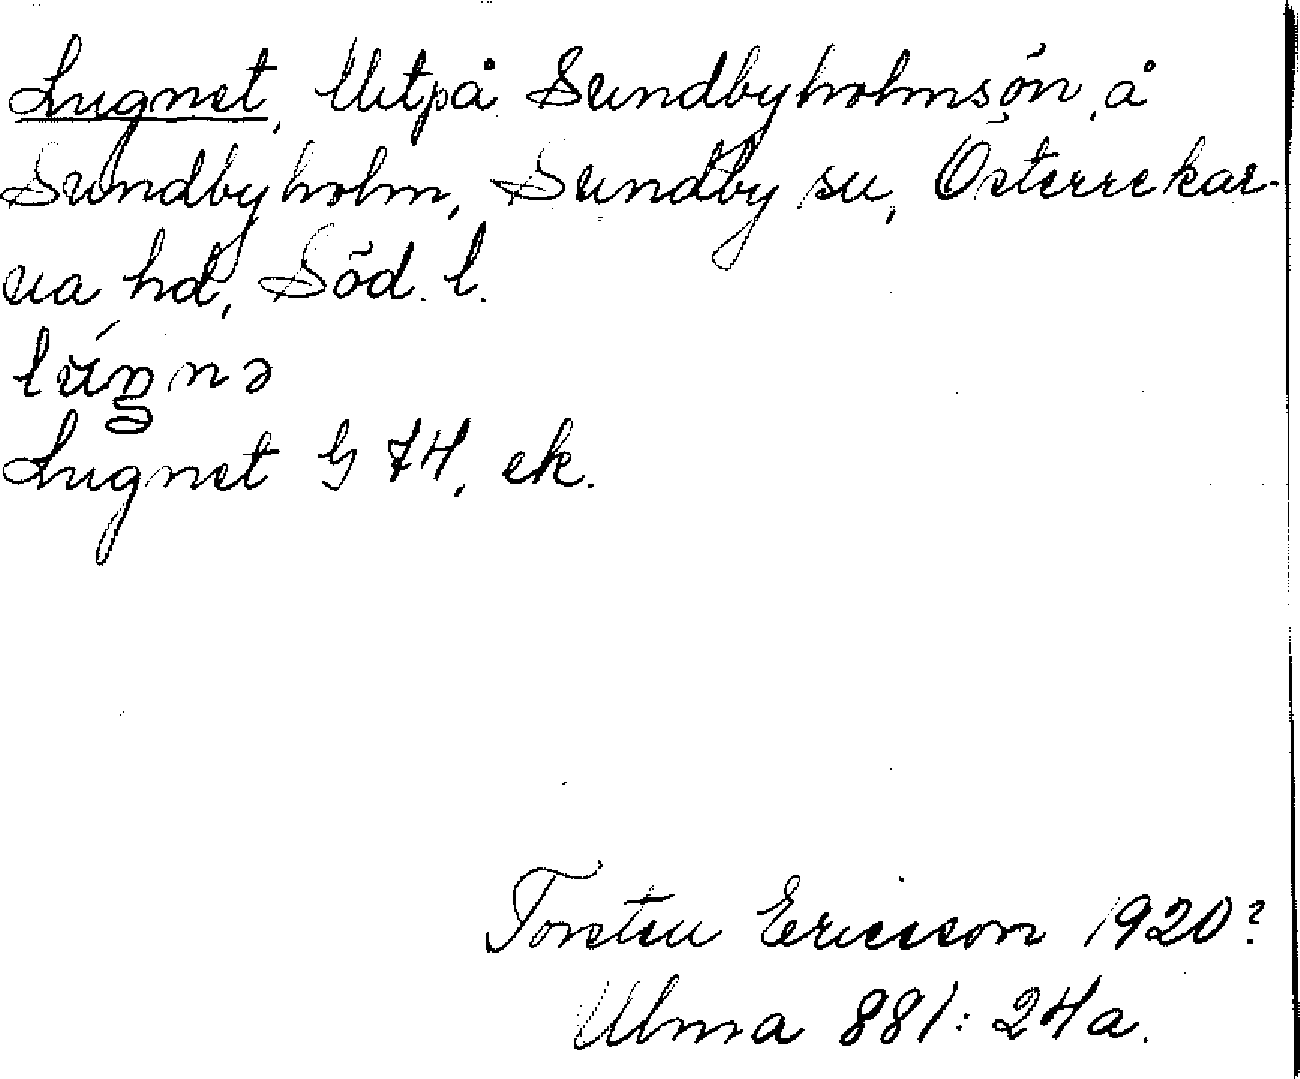 Lugnet, Utpå Sundbyholmsön, å
Sundbyholm, Sundby sn, Österrekar-
na hd, Söd. l.
Lugnet G 74, ek.
Torsten Ericsson 1920?
Ulma 881:24a.